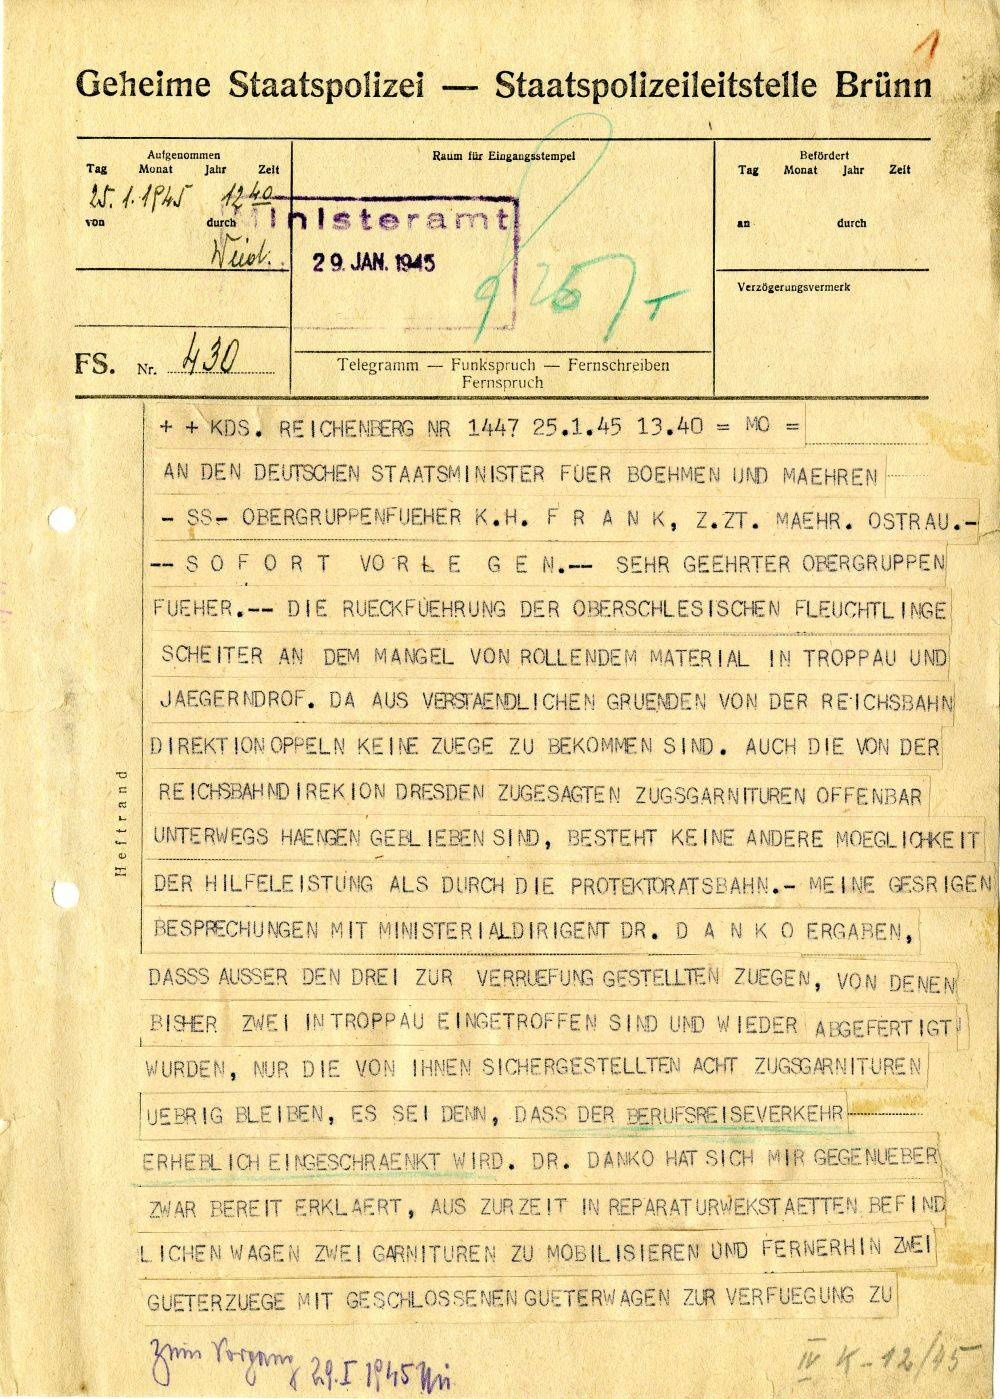 1
Geheime Staatspolizei — Staatspolizeileitstelle Brünn
Aufgenommen
Tag Monat Jahr Zeit
25. 1. 1945 12 40
von durch
Raum für Eingangsstempel
Ministeramt
29. JAN. 1945
Befördert
Tag Monat Jahr Zeit
an durch
Verzögerungsvermerk
FS. Nr. 430
Telegramm — Funkspruch — Fernschreiben
Fernspruch
+ + KDS. REICHENBERG NR 1447 25.1.45 13.40 = MO =
AN DEN DEUTSCHEN STAATSMINISTER FUER BOEHMEN UND MAEHREN
- SS- OBERGRUPPENFUEHER K.H. F R A N K, Z.ZT. MAEHR. OSTRAU.-
-- S O F O R T VO R L E G E N.-- SEHR GEEHRTER OBERGRUPPEN
FUEHER.-- DIE RUECKFUEHRUNG DER OBERSCHLESISCHEN FLEUCHTLINGE
SCHEITER AN DEM MANGEL VON ROLLENDEM MATERIAL IN TROPPAU UND
JAEGERNDROF. DA AUS VERSTAENDLICHEN GRUENDEN VON DER REICHSBAHN
DIREKTION OPPELN KEINE ZUEGE ZU BEKOMMEN SIND. AUCH DIE VON DER
REICHSBAHNDIREKION DRESDEN ZUGESAGTEN ZUGSGARNITUREN OFFENBAR
UNTERWEGS HAENGEN GEBLIEBEN SIND, BESTEHT KEINE ANDERE MOEGLICHKEIT
DER HILFELEISTUNG ALS DURCH DIE PROTEKTORATSBAHN.- MEINE GESRIGEN
BESPRECHUNGEN MIT MINISTERIALDIRIGENT DR. D A N K O ERGABEN,
DASSS AUSSER DEN DREI ZUR VERRUEFUNG GESTELLTEN ZUEGEN, VON DENEN
BISHER ZWEI IN TROPPAU EINGETROFFEN SIND UND WIEDER ABGEFERTIGT
WURDEN, NUR DIE VON IHNEN SICHERGESTELLTEN ACHT ZUGSGARNITUREN
UEBRIG BLEIBEN, ES SEI DENN, DASS DER BERUFSREISEVERKEHR
ERHEBLICH EINGESCHRAENKT WIRD. DR. DANKO HAT SICH MIR GEGENUEBER
ZWAR BEREIT ERKLAERT, AUS ZURZEIT IN REPARATURWEKSTAETTEN BEFIND
LICHEN WAGEN ZWEI GARNITUREN ZU MOBILISIEREN UND FERNERHIN ZWEI
GUETERZUEGE MIT GESCHLOSSENEN GUETERWAGEN ZUR VERFUEGUNG ZU
Heftrand
Zum Vorgang 29. I 1945
IV K - 12/45